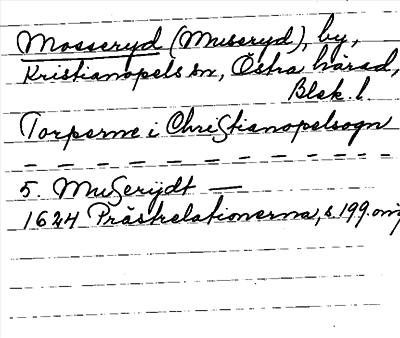 Mosseryd (Museryd), by,
Kristianopels sn, Östra härad,
Blek. l.
Torperne i Christianopelsogn
— — — — — — — — — — — —
5. Muserÿdt —
1624 Prästrelationerna, s. 199. orig